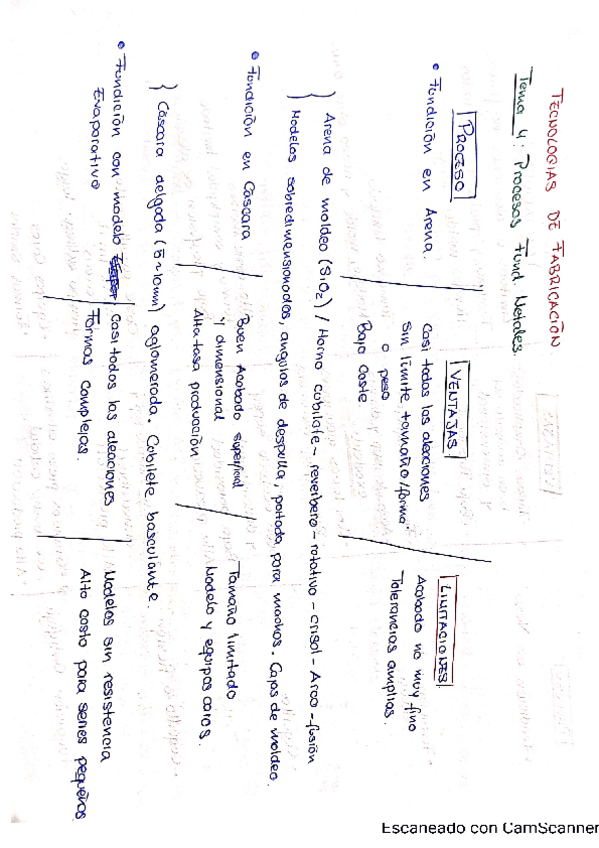 TECNOLOGIAS DE FABRICACIÓN
Tema 4: Procesos Fund. Metales.
PROCESO
VENTAJAS
LIMITACIONES
• Fundición en Arena.
Casi todas las aleaciones
Sin límite tamaño/forma
o peso
Bajo Coste
Acabado no muy fino
Tolerancias amplias.
} Arena de moldeo (SiO2) / Horno cubilote - reverbero - rotativo - crisol - Arco - fusión
} Modelos sobredimensionados, angulos de despulla, portada para machos. Cajas de moldeo.
• Fundición en Cáscara
Buen Acabado superficial
y dimensional
Alta tasa producción
Tamaño limitado
Modelo y equipos caros.
} Cáscara delgada (5~10mm) aglomerada. Cobilete basculante.
• Fundición con modelo
Evaporativo
Casi todas las aleaciones
Formas complejas.
Modelos sin resistencia
Alto costo para series pequeñas
Escaneado con CamScanner